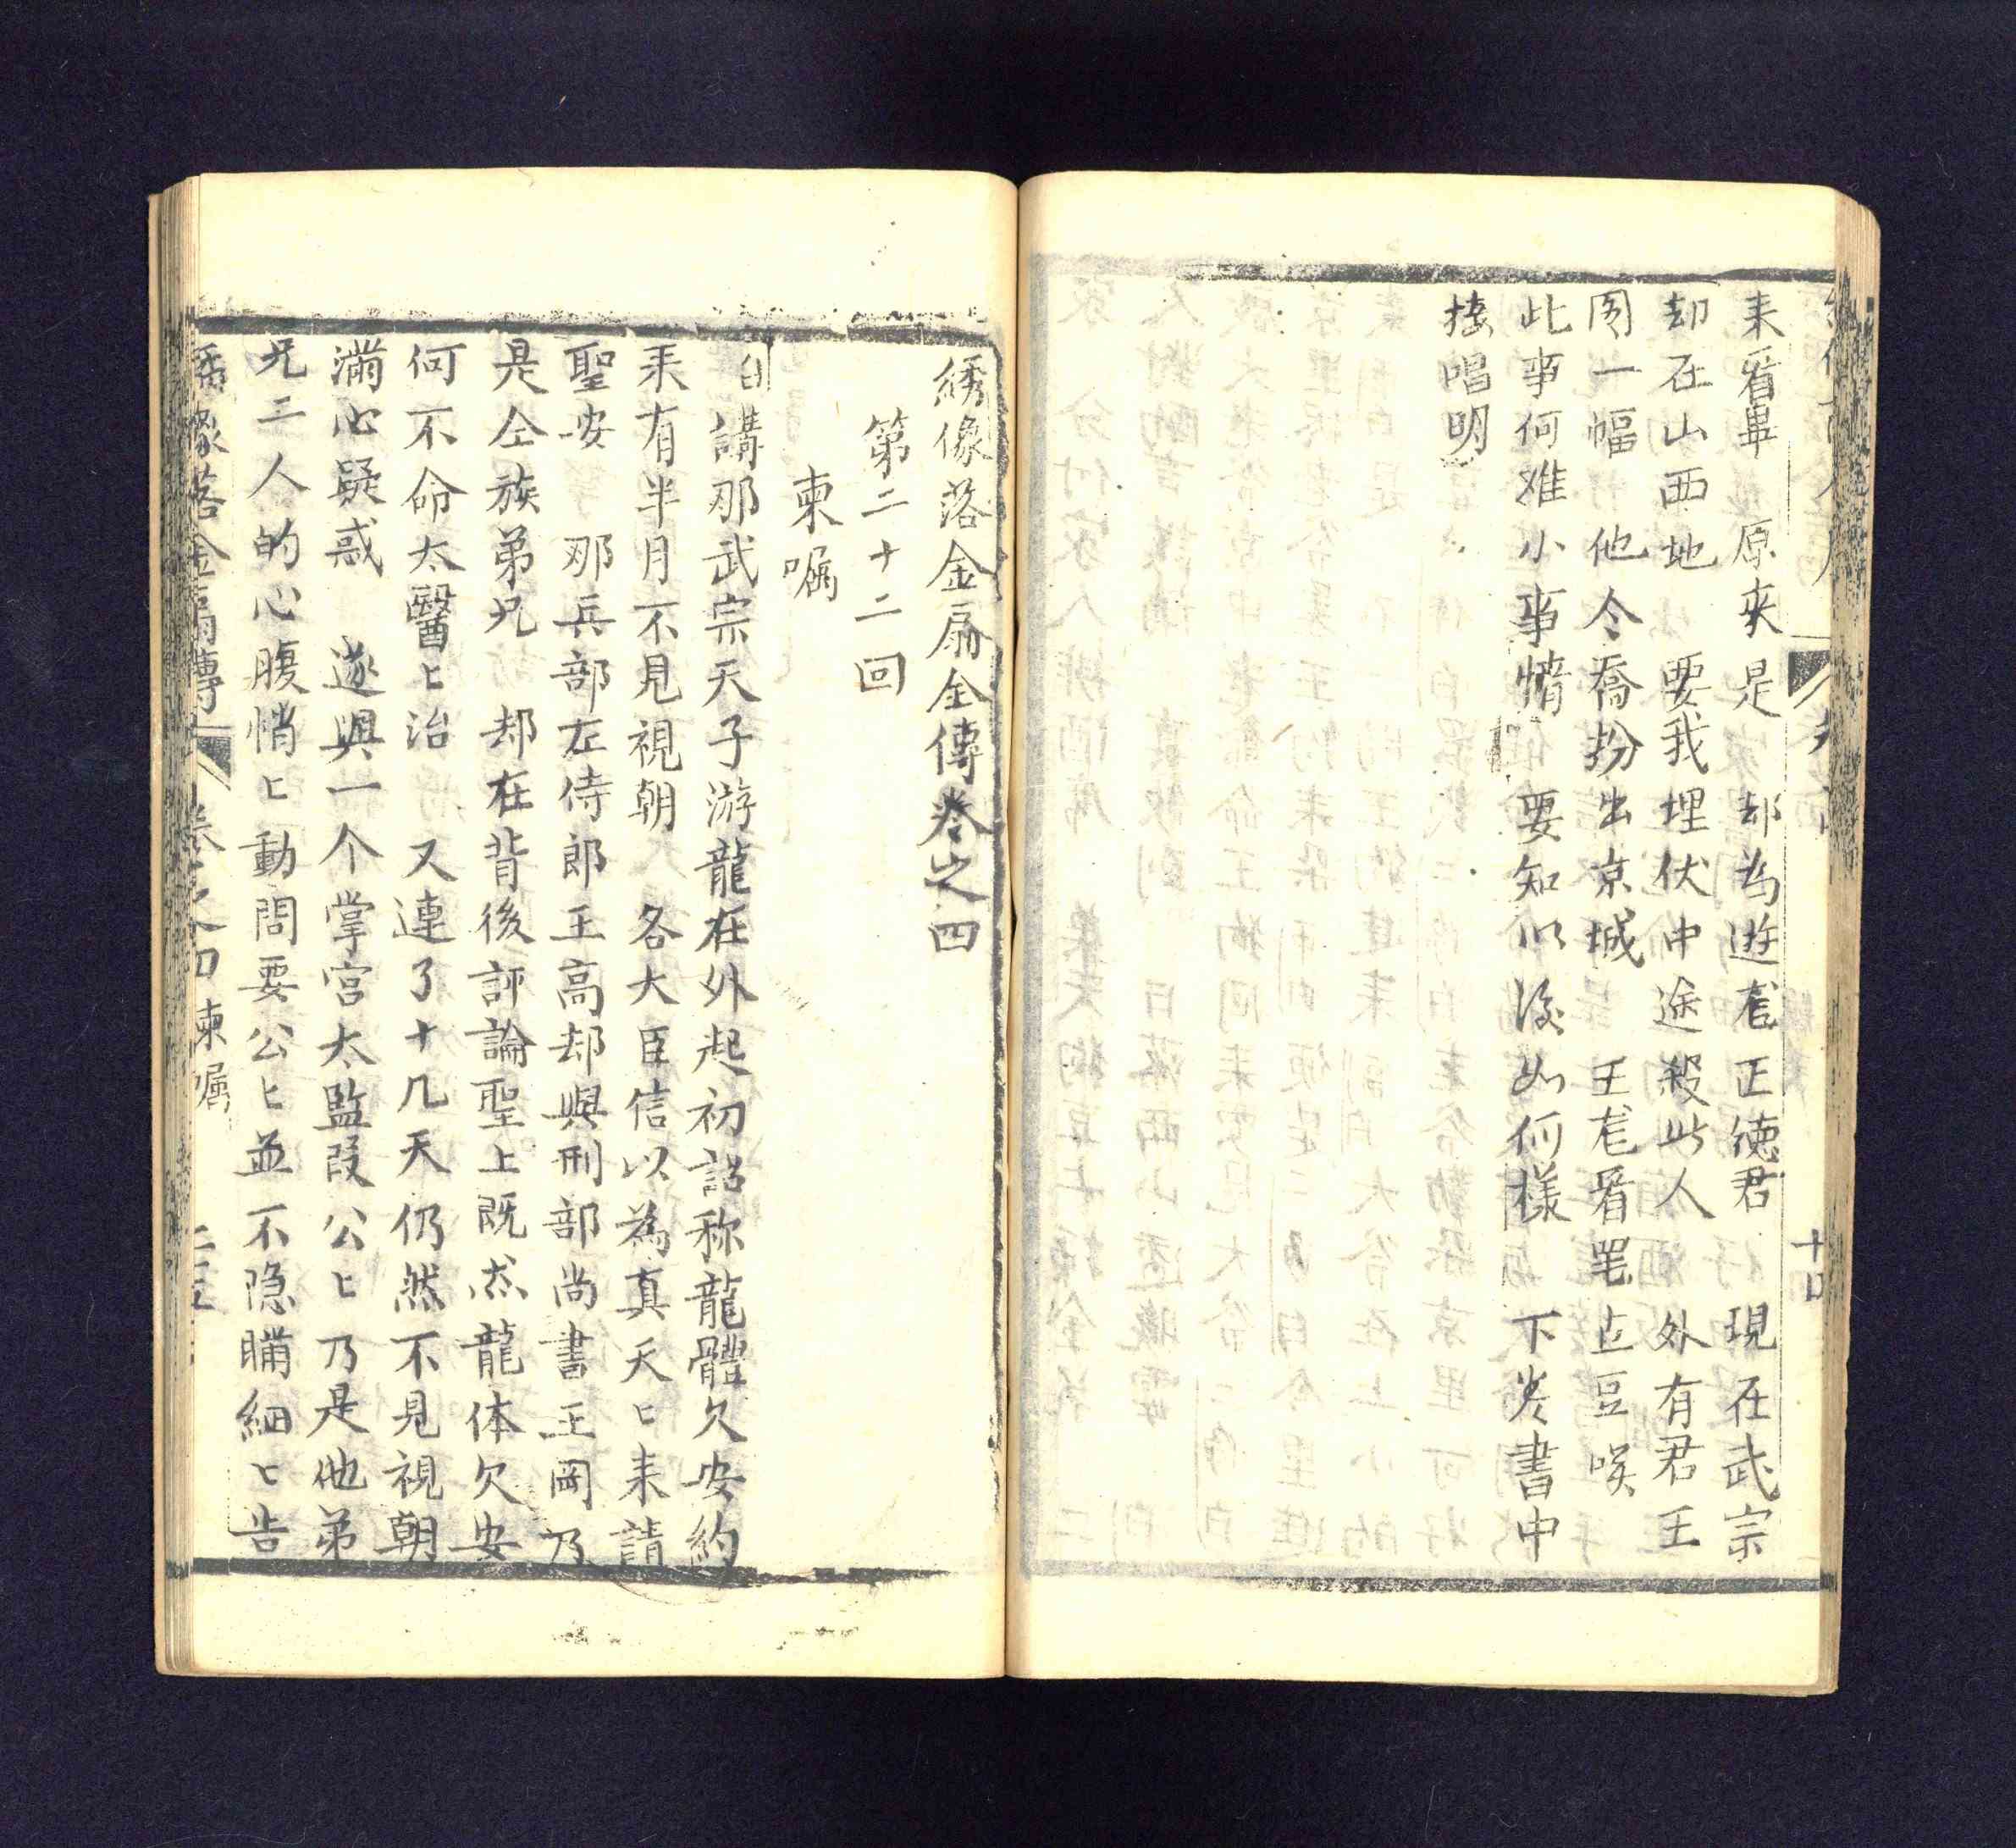 来看畢　原来是　却為遊龙正德君　現在武宗
却在山西地　要我埋伏中途殺此人　外有君王
图一幅　他今喬扮出京城　王龙看罢　豆唉
此事何难小事情　要知以後如何樣　下卷書中
接唱明
十四
綉像落金扇全傳卷之四
第二十二回
柬囑
白　講那武宗天子游龍在外起初詔称龍體欠安約
来有半月不見視朝　各大臣信以為真天匕来請
聖安　那兵部左侍郎王高却與刑部尚書王岡乃
是仝族弟兄　却在背後評論聖上既然龍体欠安
何不命太醫匕治　又連了十几天仍然不見視朝
滿心疑惑　遂與一个掌宮太監段公匕乃是他弟
兄二人的心腹悄匕動問要公匕並不隐瞞細匕告
綉像落金扇傳　卷之四　柬囑